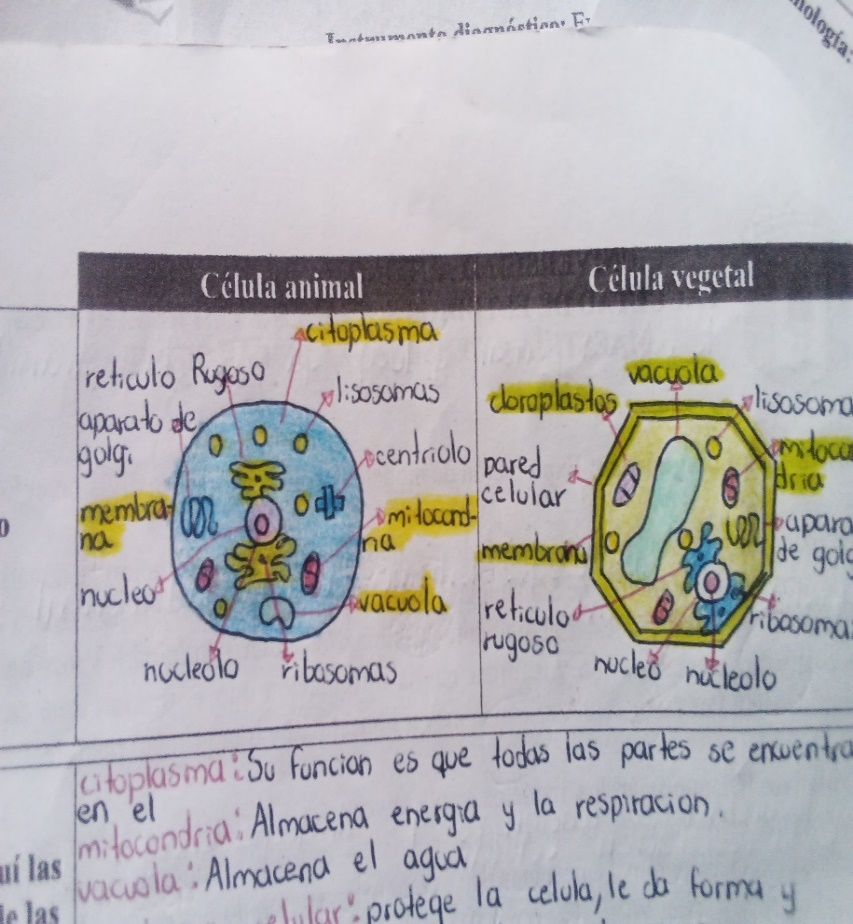 Instrumento diagnóstico:
Célula animal
Célula vegetal
citoplasma
reticulo Rugoso
lisosomas
aparato de
golgi
centriolo
membra-
na
mitocond-
ria
nucleo
vacuola
nucleolo
ribosomas
vacuola
cloroplastos
lisosoma
mitoco
dria
pared
celular
apara
de golg
membrana
reticulo
rugoso
ribosoma
nucleo
nucleolo
citoplasma: Su funcion es que todas las partes se encuentra
en el
mitocondria: Almacena energia y la respiracion.
vacuola: Almacena el agua
elular: protege la celula, le da forma y
uí las
de las